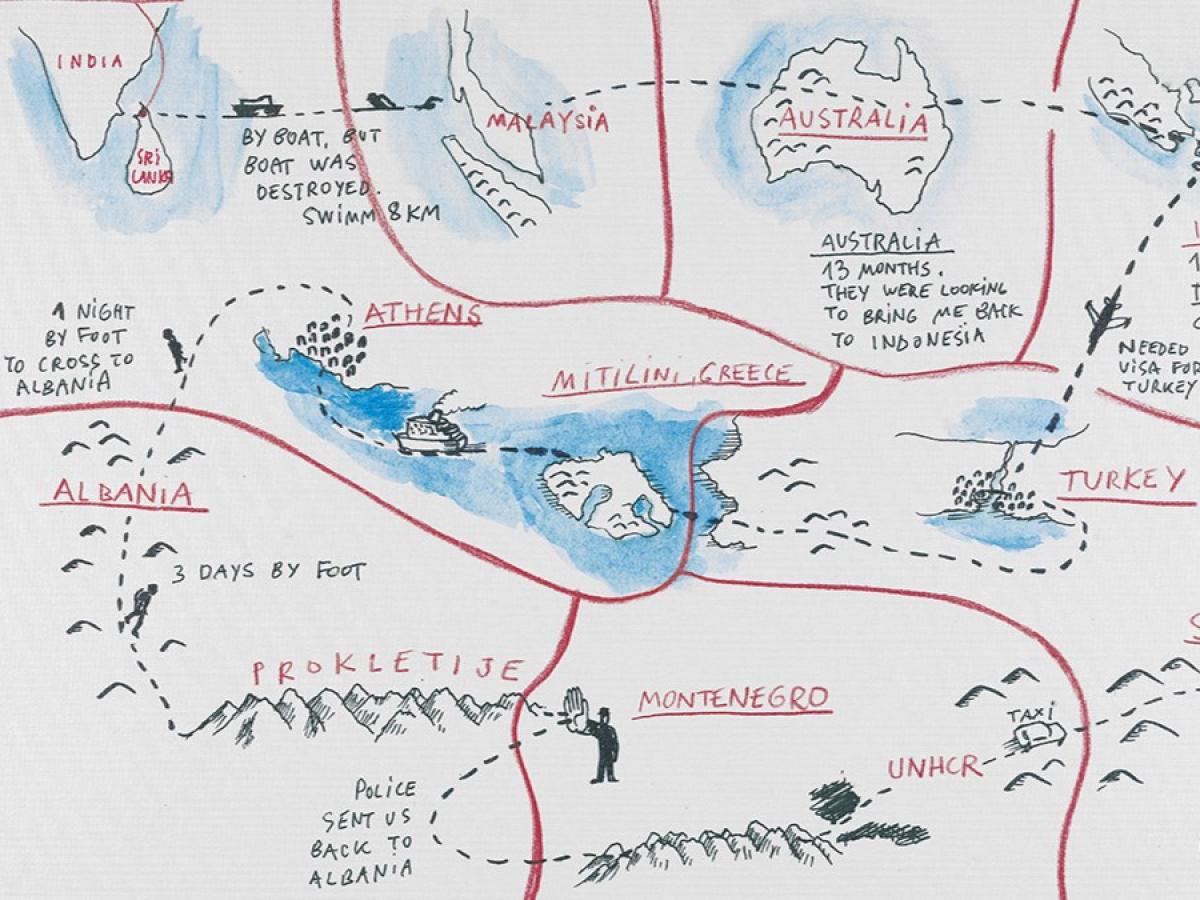 INDIA
SRI
LANKA
BY BOAT, BUT
BOAT WAS
DESTROYED.
SWIMM 8 KM
MALAYSIA
AUSTRALIA
AUSTRALIA
13 MONTHS.
THEY WERE LOOKING
TO BRING ME BACK
TO INDONESIA
NEEDED
VISA FOR
TURKEY
1 NIGHT
BY FOOT
TO CROSS TO
ALBANIA
ATHENS
MITILINI, GREECE
TURKEY
ALBANIA
3 DAYS BY FOOT
PROKLETIJE
MONTENEGRO
TAXI
UNHCR
POLICE
SENT US
BACK TO
ALBANIA